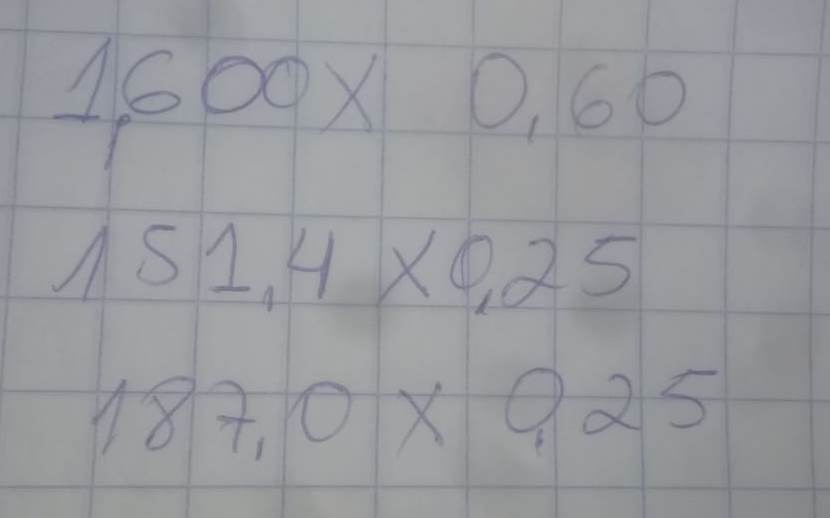 1,600 X 0,60
151,4 X 0,25
187,0 X 0,25